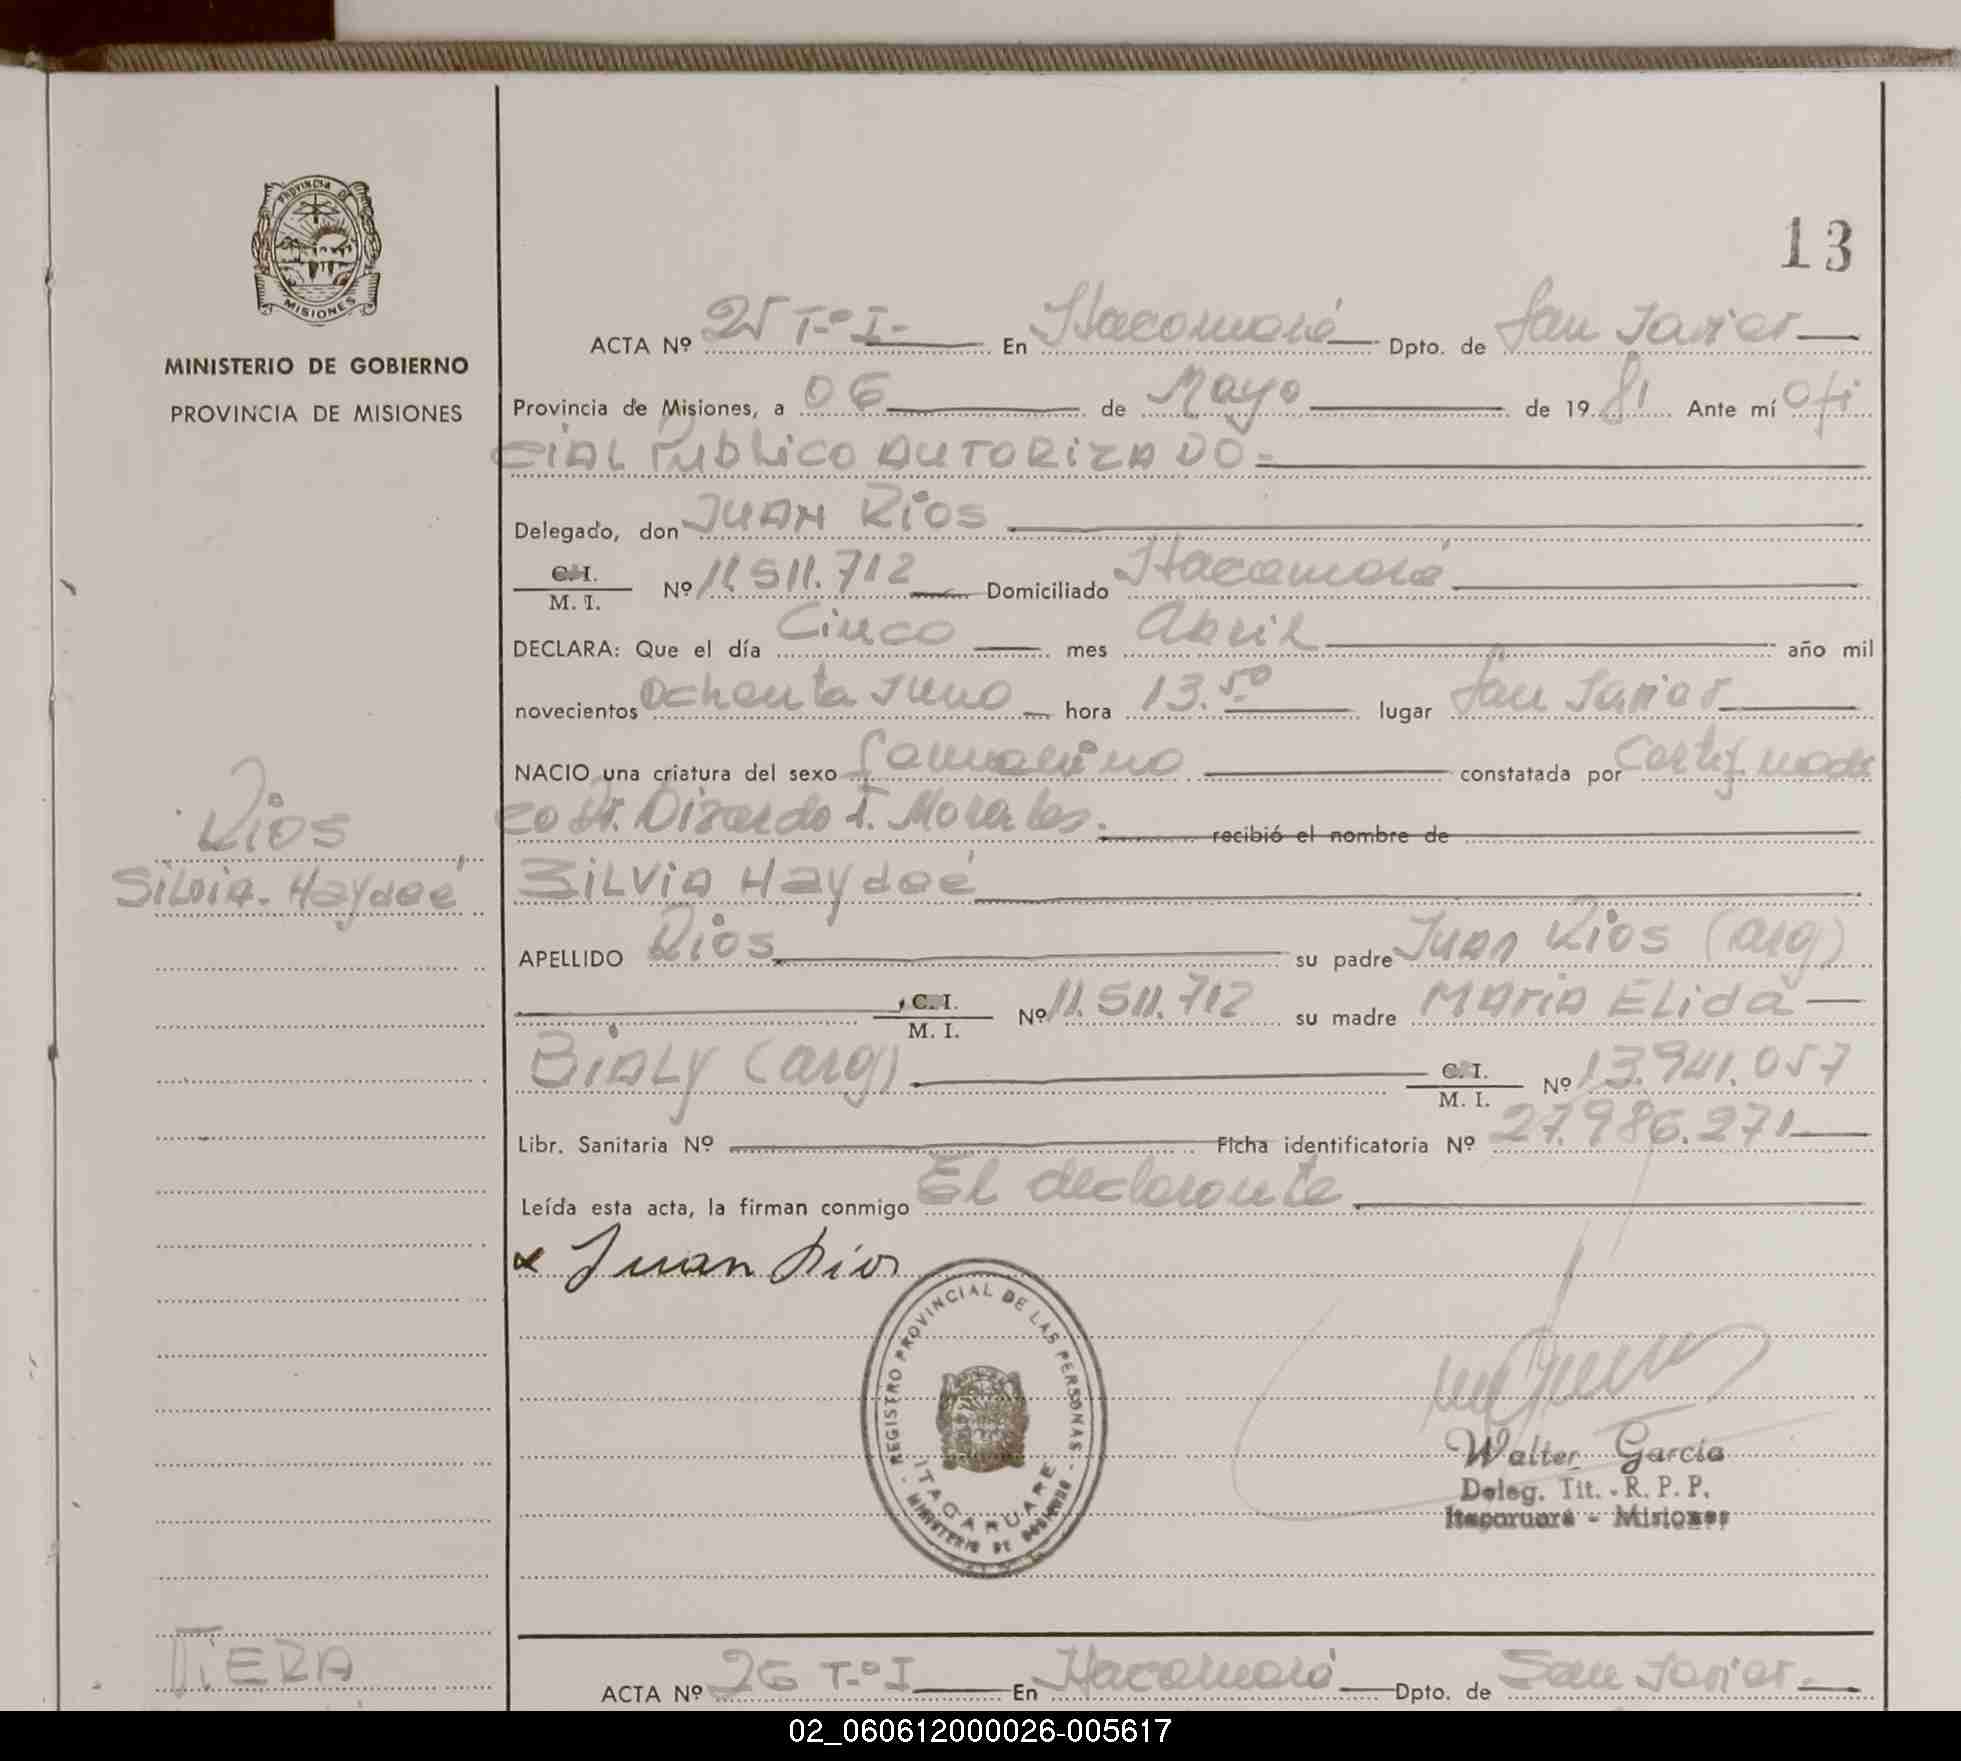 PROVINCIA DE
MISIONES
MINISTERIO DE GOBIERNO
PROVINCIA DE MISIONES
13
ACTA Nº 25 T.º I.- En Itacaruaré Dpto. de San Javier
Provincia de Misiones, a 06 de Mayo de 1981 Ante mí Ofi
cial Publico AUTORIZADO-
Delegado, don JUAN Rios
C.I. / M. I. Nº 11.511.712 Domiciliado Itacaruaré
DECLARA: Que el día Cinco mes Abril año mil
novecientos ochenta y uno hora 13.50 lugar San Javier
NACIO una criatura del sexo femenino constatada por Certif. medi
co Dr. T. Morales. recibió el nombre de
Rios
Silvia Haydeé
SILVIA Haydeé
APELLIDO Rios su padre Juan Rios (arg)
C. I. / M. I. Nº 11.511.712 su madre MARIA ELIDA
BIALY (arg) C.I. / M. I. Nº 13.941.057
Libr. Sanitaria Nº Ficha identificatoria Nº 27.986.271
Leída esta acta, la firman conmigo El declarante
Juan Rios
REGISTRO PROVINCIAL DE LAS PERSONAS
ITACARUARE
MINISTERIO DE GOBIERNO
Walter García
Deleg. Tit. - R. P. P.
Itacaruaré - Misiones
ACTA Nº 26 T.º I En Itacaruaré Dpto. de San Javier
02_060612000026-005617